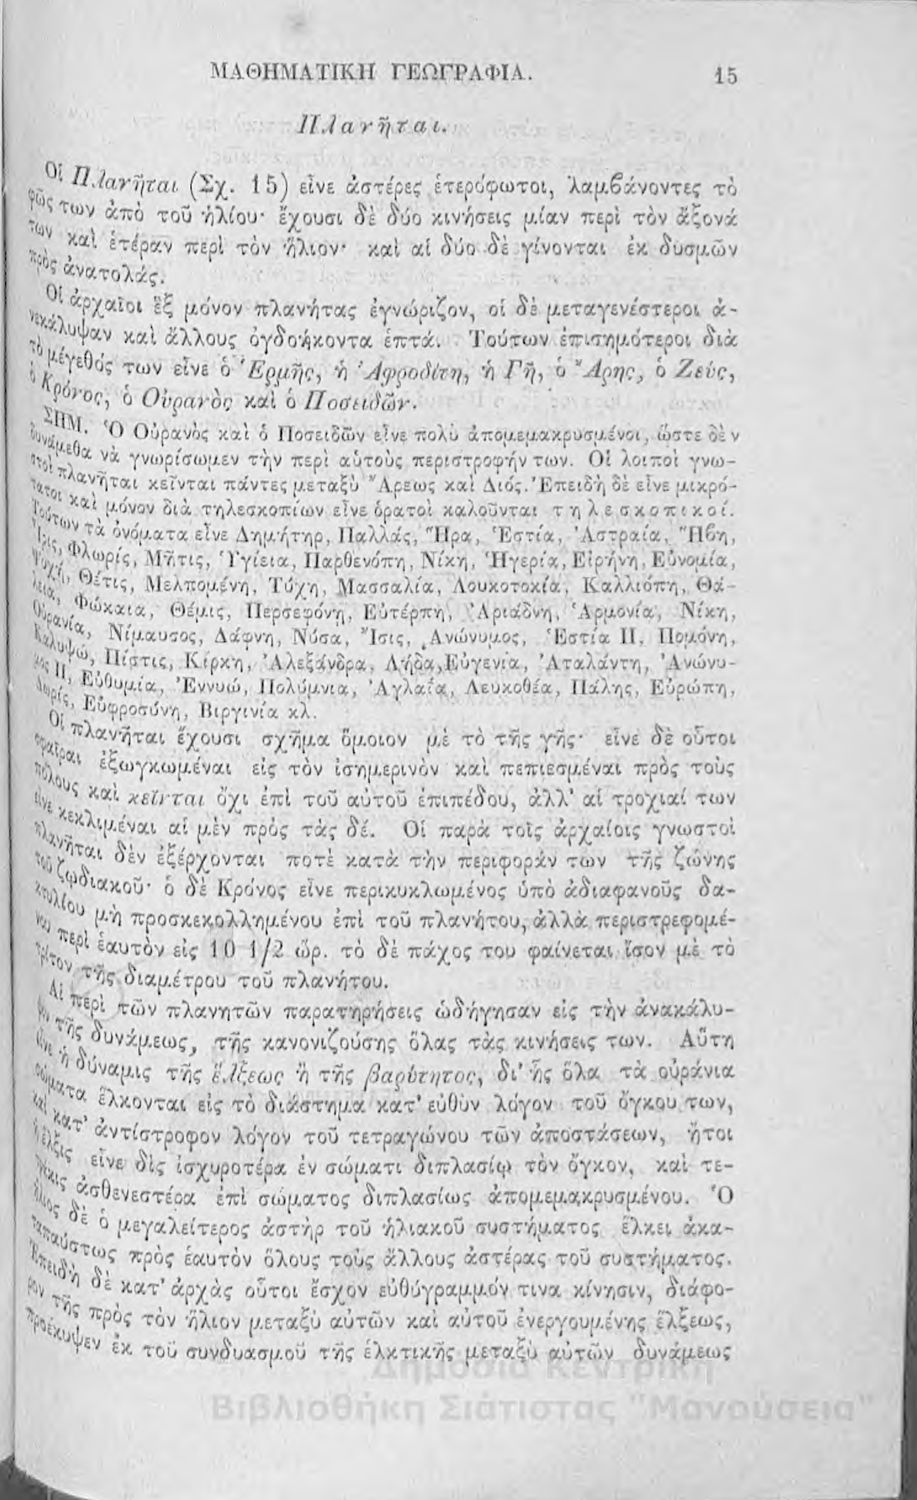 ΜΑΘΗΜΑΤΙΚΗ ΓΕΩΓΡΑΦΙΑ. 15
Πλανῆται.
Οἱ Πλανῆται (Σχ. 15) εἶνε ἀστέρες ἑτερόφωτοι, λαμβάνοντες τὸ
φῶς των ἀπὸ τοῦ ἡλίου· ἔχουσι δὲ δύο κινήσεις μίαν περὶ τὸν ἄξονά
των καὶ ἑτέραν περὶ τὸν ἥλιον· καὶ αἱ δύο δὲ γίνονται ἐκ δυσμῶν
πρὸς ἀνατολάς.
Οἱ ἀρχαῖοι ἓξ μόνον πλανήτας ἐγνώριζον, οἱ δὲ μεταγενέστεροι ἀ-
νεκάλυψαν καὶ ἄλλους ὀγδοήκοντα ἑπτά. Τούτων ἐπισημότεροι διὰ
τὸ μέγεθός των εἶνε ὁ Ἑρμῆς, ἡ Ἀφροδίτη, ἡ Γῆ, ὁ Ἄρης, ὁ Ζεύς,
ὁ Κρόνος, ὁ Οὐρανὸς καὶ ὁ Ποσειδῶν.
ΣΗΜ. Ὁ Οὐρανὸς καὶ ὁ Ποσειδῶν εἶνε πολὺ ἀπομεμακρυσμένοι, ὥστε δὲν
δυνάμεθα νὰ γνωρίσωμεν τὴν περὶ αὑτοὺς περιστροφήν των. Οἱ λοιποὶ γνω-
στοὶ πλανῆται κεῖνται πάντες μεταξὺ Ἄρεως καὶ Διός. Ἐπειδὴ δὲ εἶνε μικρό-
τατοι καὶ μόνον διὰ τηλεσκοπίων εἶνε ὁρατοὶ καλοῦνται τηλεσκοπικοί.
Τούτων τὰ ὀνόματα εἶνε Δημήτηρ, Παλλάς, Ἥρα, Ἑστία, Ἀστραία, Ἥβη,
Ἶρις, Φλωρίς, Μῆτις, Ὑγίεια, Παρθενόπη, Νίκη, Ἡγερία, Εἰρήνη, Εὐνομία,
Ψυχή, Θέτις, Μελπομένη, Τύχη, Μασσαλία, Λουκοτοκία, Καλλιόπη, Θά-
λεια, Φώκαια, Θέμις, Περσεφόνη, Εὐτέρπη, Ἀριάδνη, Ἁρμονία, Νίκη,
Οὐρανία, Νίμαυσος, Δάφνη, Νύσα, Ἶσις, Ἀνώνυμος, Ἑστία ΙΙ, Πομόνη,
Καλυψώ, Πίστις, Κίρκη, Ἀλεξάνδρα, Λήδα, Εὐγενία, Ἀταλάντη, Ἀνώνυ-
μος ΙΙ, Εὐθυμία, Ἐννυώ, Πολύμνια, Ἀγλαΐα, Λευκοθέα, Πάλης, Εὐρώπη,
Δωρίς, Εὐφροσύνη, Βιργινία κλ.
Οἱ πλανῆται ἔχουσι σχῆμα ὅμοιον μὲ τὸ τῆς γῆς· εἶνε δὲ οὗτοι
σφαῖραι ἐξωγκωμέναι εἰς τὸν ἰσημερινὸν καὶ πεπιεσμέναι πρὸς τοὺς
πόλους καὶ κεῖνται ὄχι ἐπὶ τοῦ αὐτοῦ ἐπιπέδου, ἀλλ' αἱ τροχιαί των
εἶνε κεκλιμέναι αἱ μὲν πρὸς τὰς δέ. Οἱ παρὰ τοῖς ἀρχαίοις γνωστοὶ
πλανῆται δὲν ἐξέρχονται ποτὲ κατὰ τὴν περιφοράν των τῆς ζώνης
τοῦ ζωδιακοῦ· ὁ δὲ Κρόνος εἶνε περικυκλωμένος ὑπὸ ἀδιαφανοῦς δα-
κτυλίου μὴ προσκεκολλημένου ἐπὶ τοῦ πλανήτου, ἀλλὰ περιστρεφομέ-
νου περὶ ἑαυτὸν εἰς 10 1/2 ὥρ. τὸ δὲ πάχος του φαίνεται ἴσον μὲ τὸ
τρίτον τῆς διαμέτρου τοῦ πλανήτου.
Αἱ περὶ τῶν πλανητῶν παρατηρήσεις ὡδήγησαν εἰς τὴν ἀνακάλυ-
ψιν τῆς δυνάμεως, τῆς κανονιζούσης ὅλας τὰς κινήσεις των. Αὕτη
εἶνε ἡ δύναμις τῆς ἕλξεως ἢ τῆς βαρύτητος, δι' ἧς ὅλα τὰ οὐράνια
σώματα ἕλκονται εἰς τὸ διάστημα κατ' εὐθὺν λόγον τοῦ ὄγκου των,
καὶ κατ' ἀντίστροφον λόγον τοῦ τετραγώνου τῶν ἀποστάσεων, ἤτοι
ἡ ἕλξις εἶνε δὶς ἰσχυροτέρα ἐν σώματι διπλασίῳ τὸν ὄγκον, καὶ τε-
τράκις ἀσθενεστέρα ἐπὶ σώματος διπλασίως ἀπομεμακρυσμένου. Ὁ
ἥλιος δὲ ὁ μεγαλείτερος ἀστὴρ τοῦ ἡλιακοῦ συστήματος ἕλκει ἀκα-
ταπαύστως πρὸς ἑαυτὸν ὅλους τοὺς ἄλλους ἀστέρας τοῦ συστήματος.
Ἐπειδὴ δὲ κατ' ἀρχὰς οὗτοι ἔσχον εὐθύγραμμόν τινα κίνησιν, διάφο-
ρον τῆς πρὸς τὸν ἥλιον μεταξὺ αὐτῶν καὶ αὐτοῦ ἐνεργουμένης ἕλξεως,
προέκυψεν ἐκ τοῦ συνδυασμοῦ τῆς ἑλκτικῆς μεταξὺ αὐτῶν δυνάμεως
Δημόσια Κεντρική
Βιβλιοθήκη Σιάτιστας "Μανούσεια"